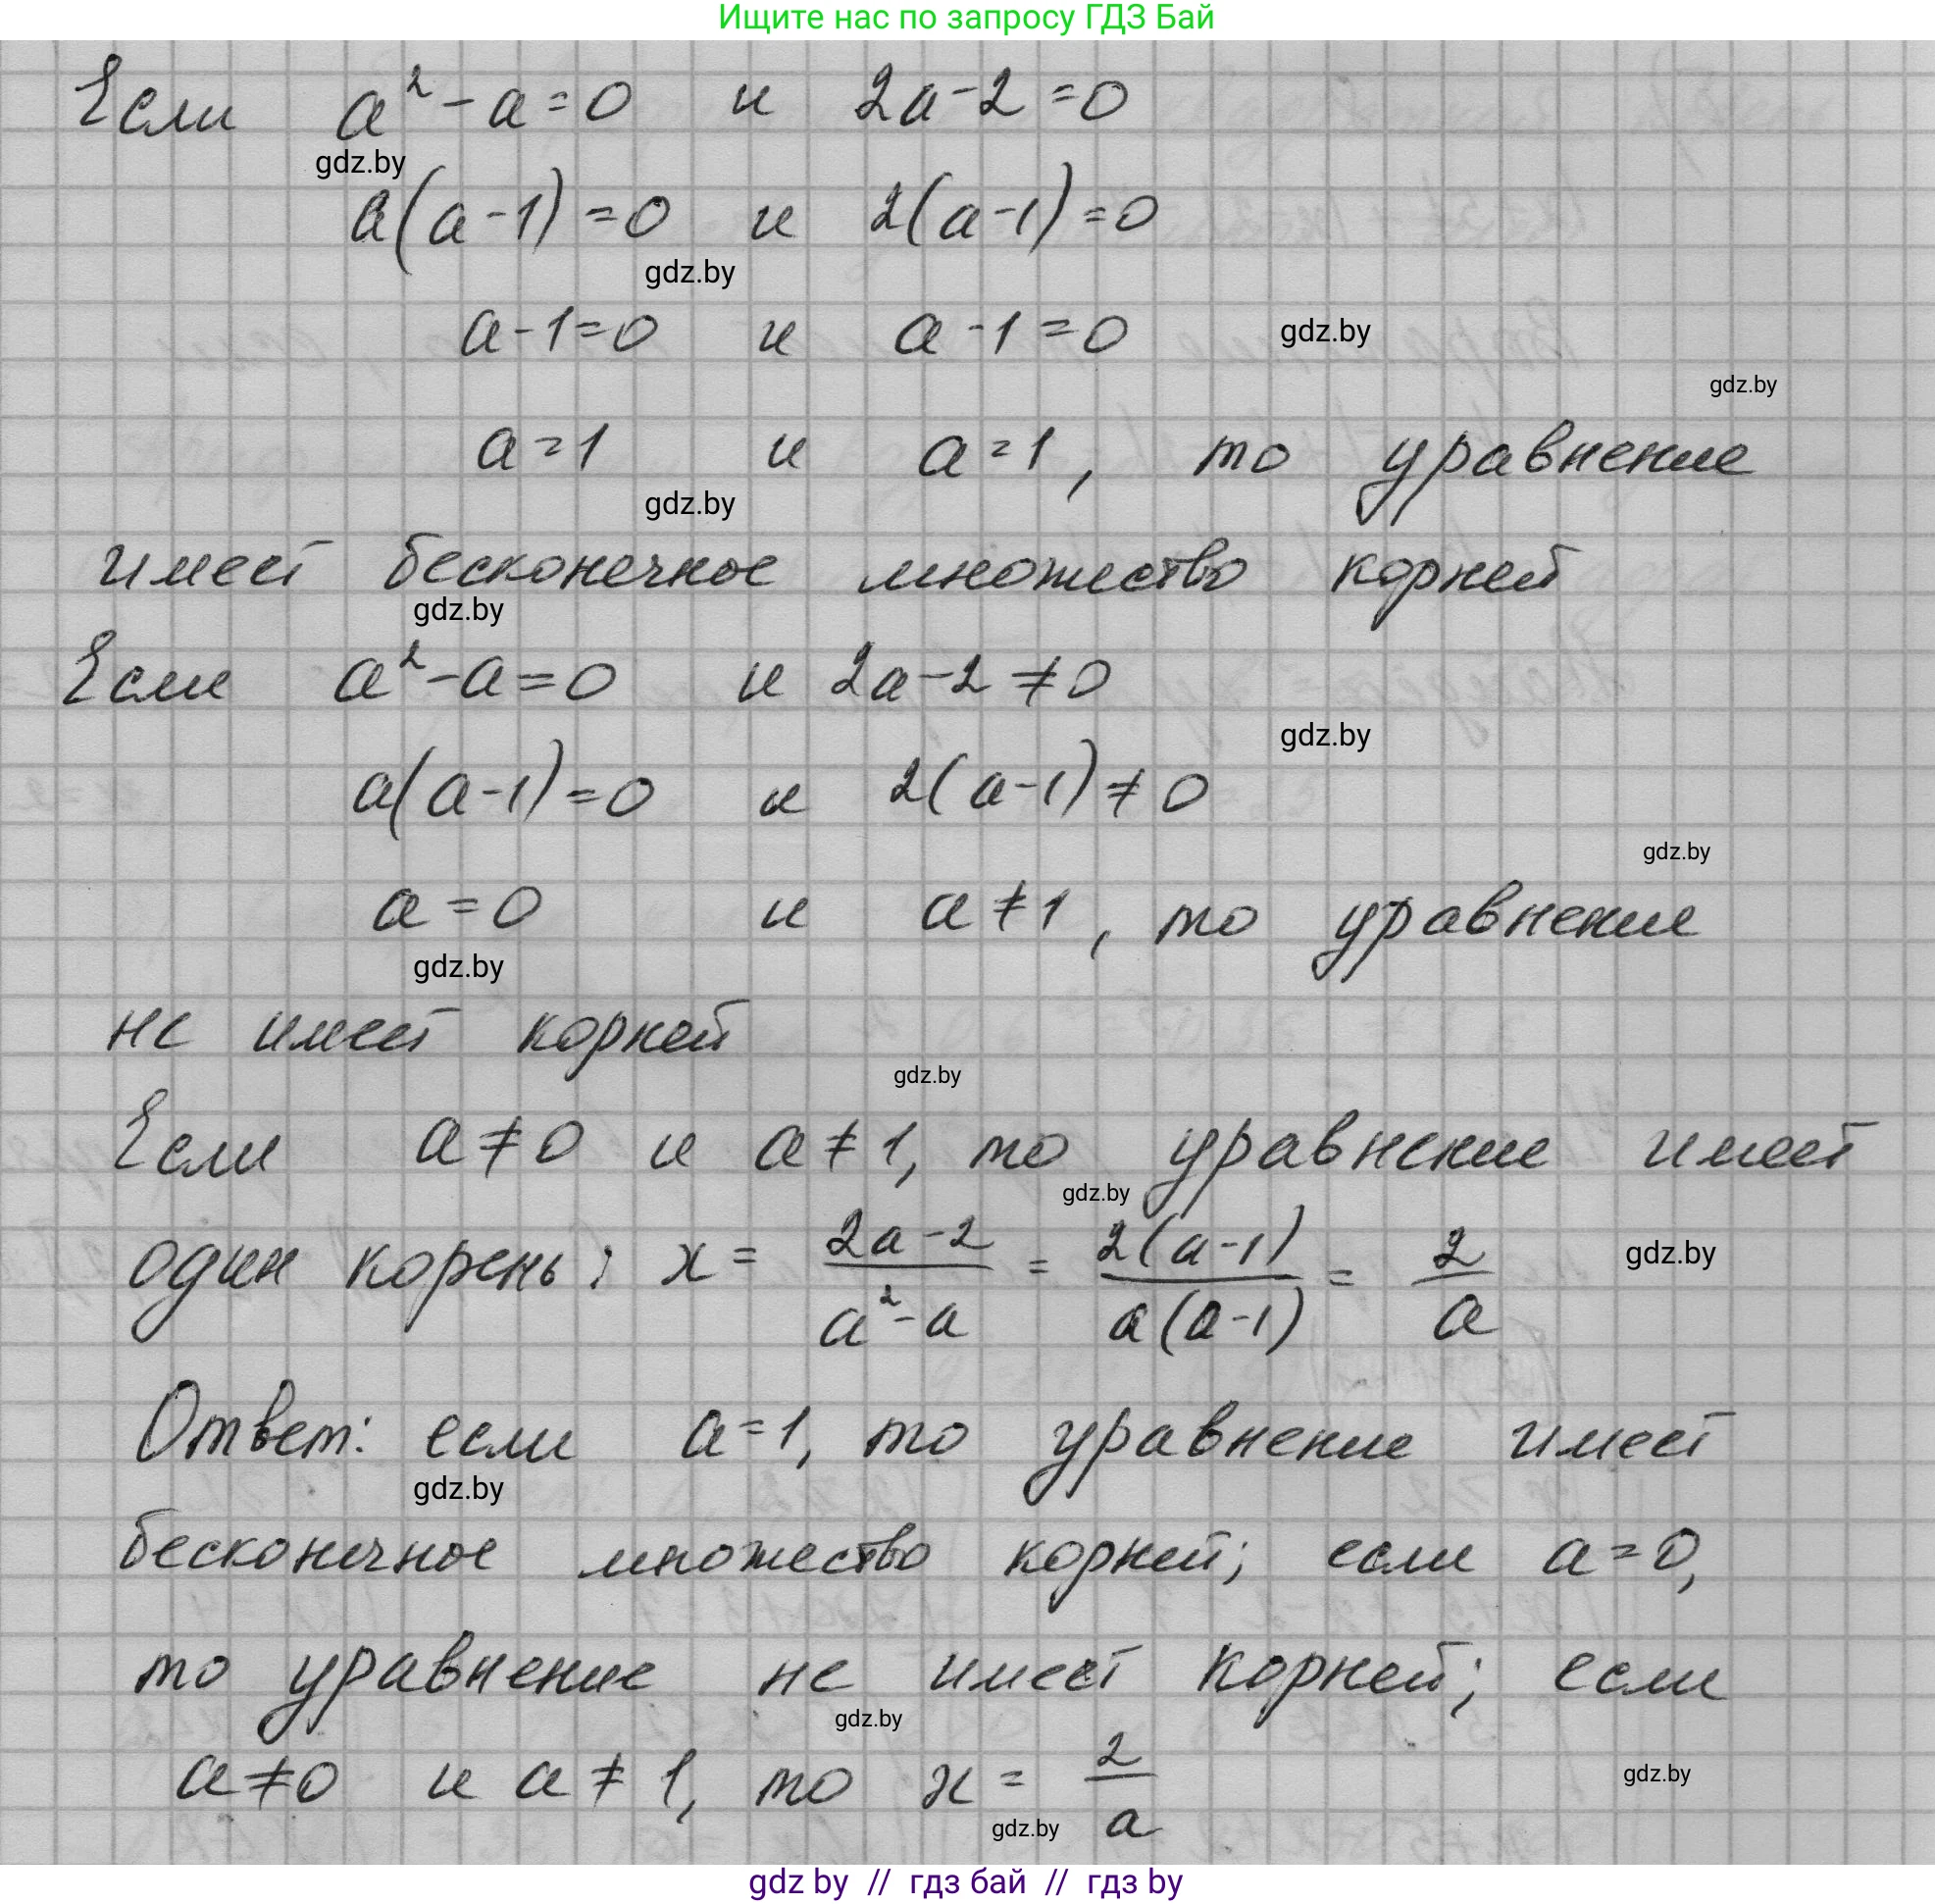 Ищите нас по запросу ГДЗ Бай
Если a² - a = 0 и 2a - 2 = 0
gdz.by
a(a - 1) = 0 и 2(a - 1) = 0
gdz.by
a - 1 = 0 и a - 1 = 0 gdz.by
gdz.by
a = 1 и a = 1, то уравнение
gdz.by
имеет бесконечное множество корней
gdz.by
Если a² - a = 0 и 2a - 2 ≠ 0
gdz.by
a(a - 1) = 0 и 2(a - 1) ≠ 0
gdz.by
a = 0 и a ≠ 1, то уравнение
gdz.by
не имеет корней
gdz.by
Если a ≠ 0 и a ≠ 1, то уравнение имеет
gdz.by
один корень: x = (2a - 2)/(a² - a) = 2(a - 1)/a(a - 1) = 2/a gdz.by
Ответ: если a = 1, то уравнение имеет
gdz.by
бесконечное множество корней; если a = 0,
то уравнение не имеет корней; если
gdz.by
a ≠ 0 и a ≠ 1, то x = 2/a gdz.by
gdz.by
gdz by // гдз бай // гдз by